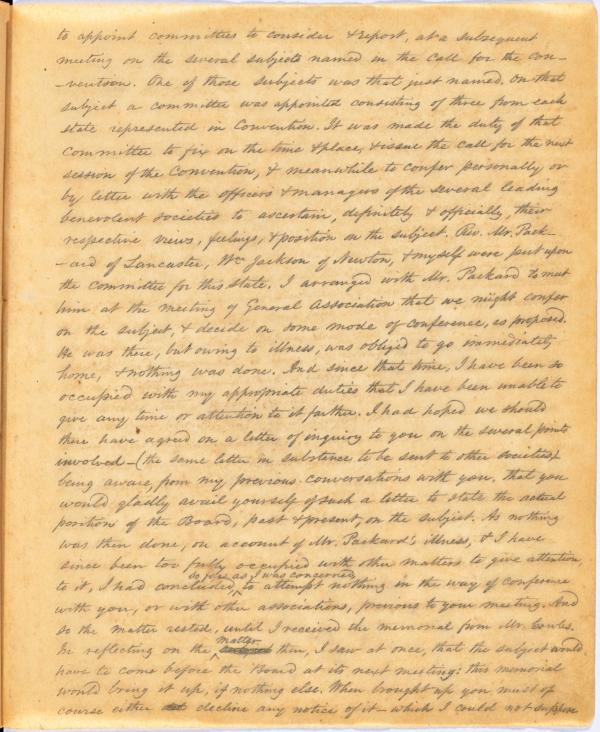 to appoint committees to consider & report, at a subsequent
meeting on the several subjects named in the call for the con-
-vention. One of those subjects was that just named. On that
subject a committee was appointed consisting of three from each
state represented in Convention. It was made the duty of that
committee to fix on the time & place, & issue the call for the next
session of the Convention, & meanwhile to confer personally or
by letter with the officers & managers of the several leading
benevolent societies to ascertain, definitely & officially, their
respective views, feelings, & position on the subject. Rev. Mr. Pack-
-ard of Lancaster, Wm Jackson of Newton, & myself were put upon
the committee for this state. I arranged with Mr. Packard to meet
him at the meeting of General Association that we might confer
on the subject, & decide on some mode of conference, as proposed.
He was there, but owing to illness, was obliged to go immediately
home, & nothing was done. And since that time, I have been so
occupied with my appropriate duties that I have been unable to
give any time or attention to it farther. I had hoped we should
there have agreed on a letter of inquiry to you on the several points
involved—(the same letter in substance to be sent to other societies)
being aware, from my previous conversations with you, that you
would gladly avail yourself of such a letter to state the actual
position of the Board, past & present, on the subject. As nothing
was then done, on account of Mr. Packard's illness, & I have
since been too fully occupied with other matters to give attention
to it, I had concluded, so far as I was concerned, to attempt nothing in the way of conference
with you, or with other associations, previous to your meeting. And
so the matter rested, until I received the memorial from Mr. Cowles.
In reflecting on the matter then, I saw at once, that the subject would
have to come before the Board at its next meeting: this memorial
would bring it up, if nothing else. When brought up you must of
course either decline any notice of it—which I could not suppose